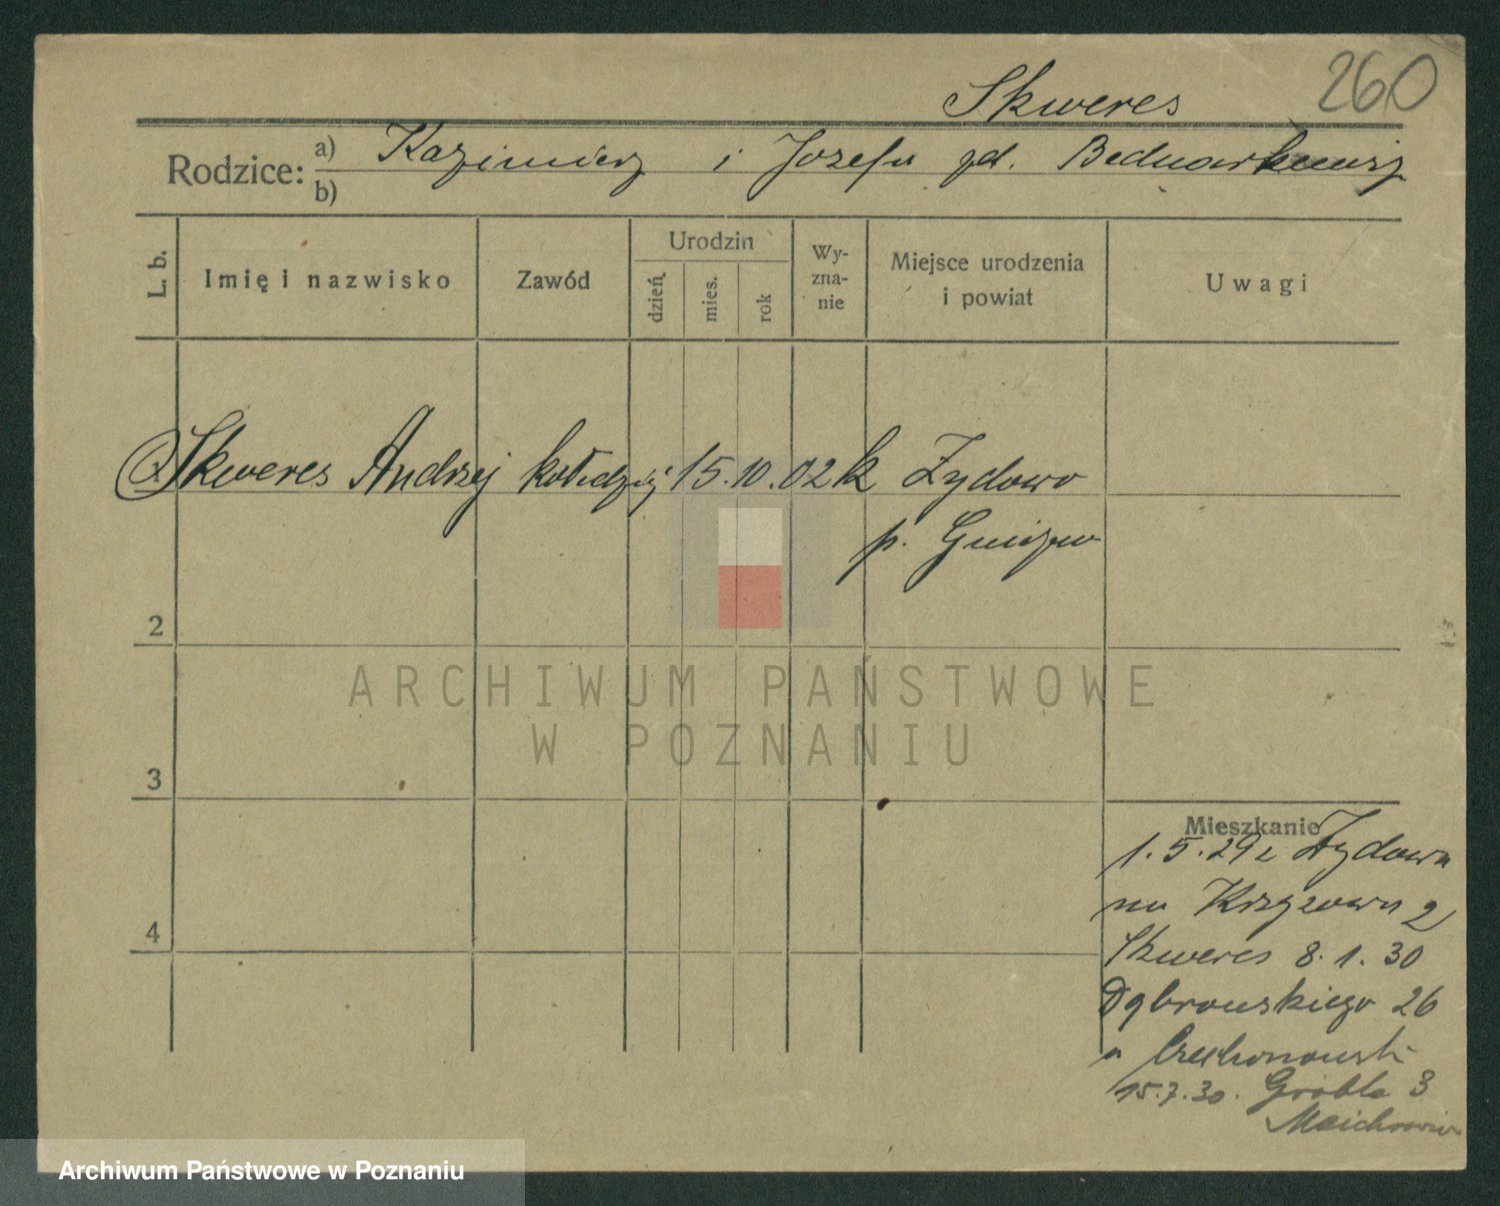 Skweres
260
Rodzice: a) Kazimierz i Jozefa zd.
b)
L. b.
Imię i nazwisko
Zawód
Urodzin
dzień
mies.
rok
Wy-
zna-
nie
Miejsce urodzenia
i powiat
Uwagi
Skweres Andrzej kołodziej 15.10.02 k Żydowo
p.
2
3
4
Mieszkanie
1.5.29 z Żydowa
na Krzyżowa 2
Skweres 8.1.30
Dąbrowskiego 26
15.7.30. Grobla 3
ARCHIWUM PAŃSTWOWE
W POZNANIU
Archiwum Państwowe w Poznaniu